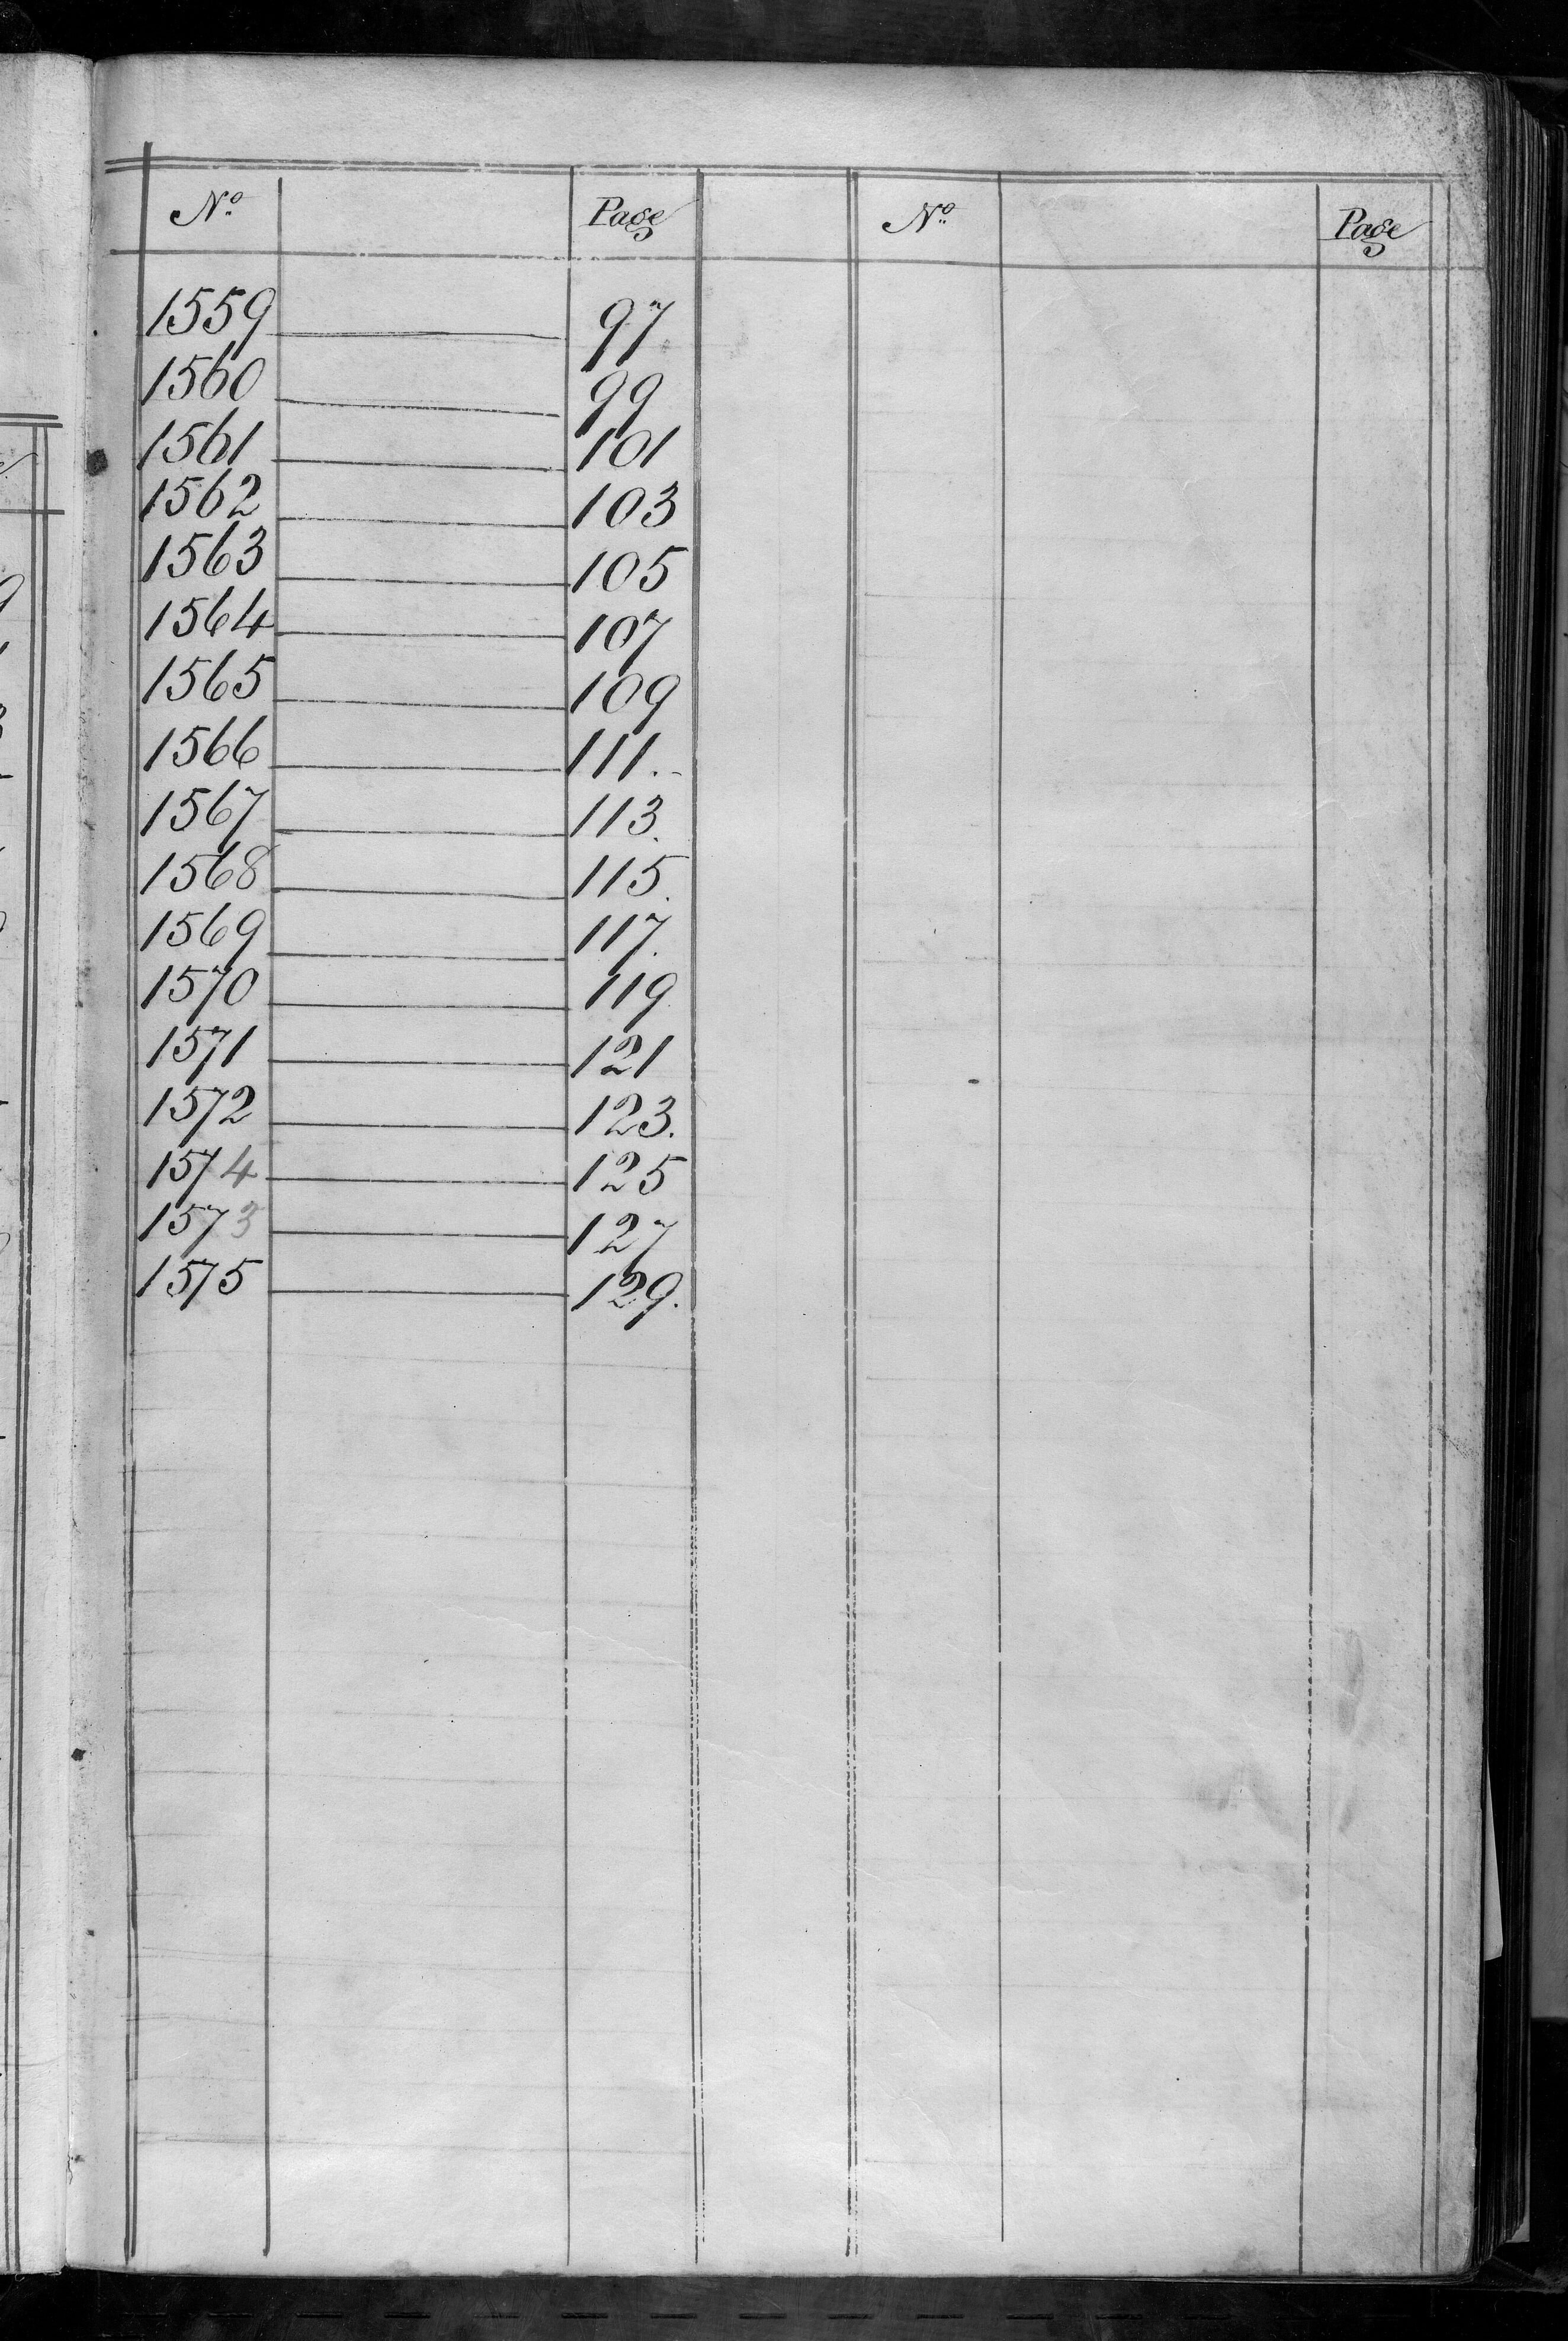 Nº Page Nº Page
1559 97
1560 99
1561 101
1562 103
1563 105
1564 107
1565 109
1566 111.
1567 113.
1568 115.
1569 117.
1570 119
1571 121
1572 123.
1574 125
1573 127
1575 129.